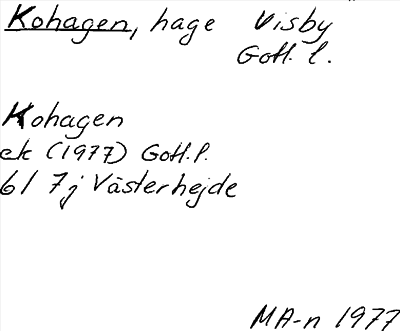 Kohagen, hage Visby
Gotl. l.
Kohagen
ek (1977) Gotl. l.
6I 7j Västerhejde
MA-n 1977